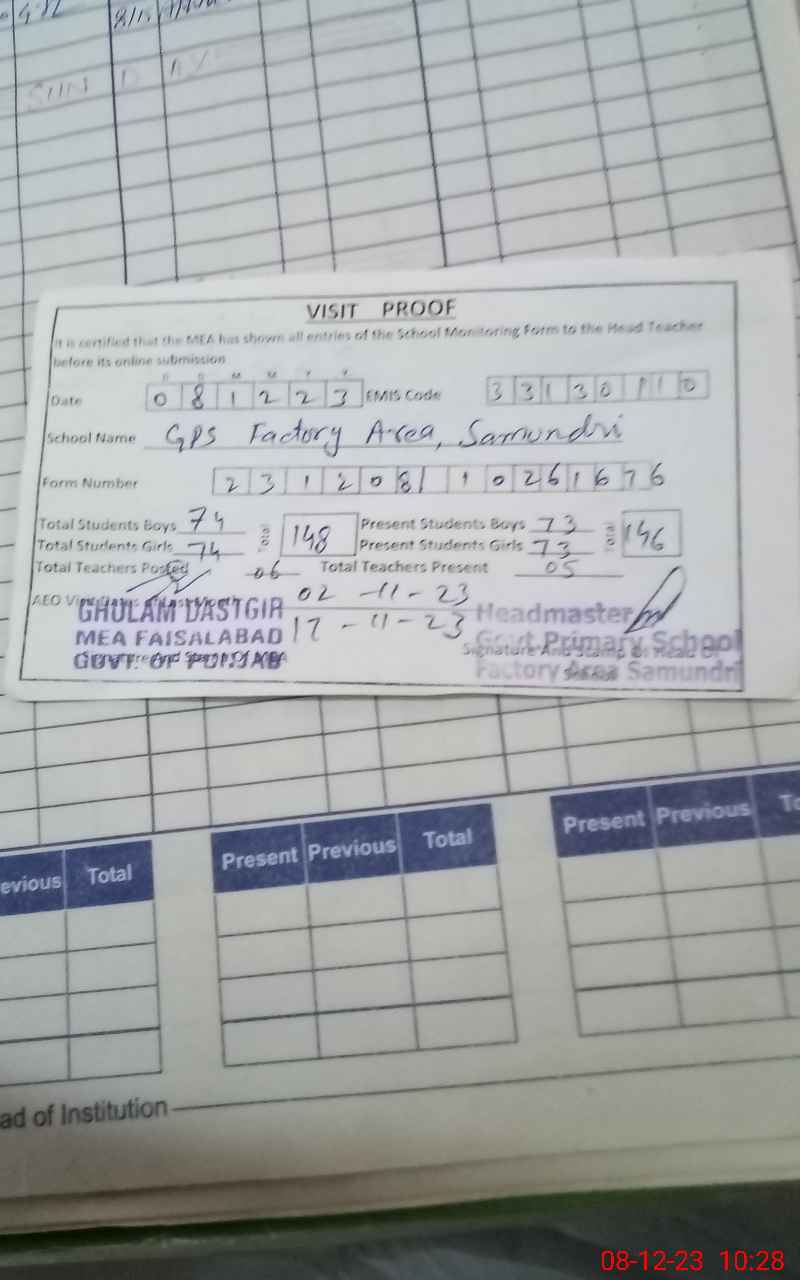 SUNDAY
VISIT PROOF
It is certified that the MEA has shown all entries of the School Monitoring Form to the Head Teacher
before its online submission
D D M M Y Y
Date 0 8 1 2 2 3 EMIS Code 3 3 1 3 0 1 1 0
School Name GPS Factory Area, Samundri
Form Number 2 3 1 2 0 8 1 1 0 2 6 1 6 7 6
Total Students Boys 74 Total 148 Present Students Boys 73 Total 146
Total Students Girls 74 Present Students Girls 73
Total Teachers Posted 06 Total Teachers Present 05
AEO Visit Dates of Last Month 02-11-23
17-11-23
GHULAM DASTGIR
MEA FAISALABAD
GOVT. OF PUNJAB
Signature And Stamp Of MEA
Headmaster
Govt Primary School
Factory Area Samundri
Signature And Stamp Of Head Of
Present Previous Total
Present Previous
evious Total
ad of Institution
08-12-23 10:28